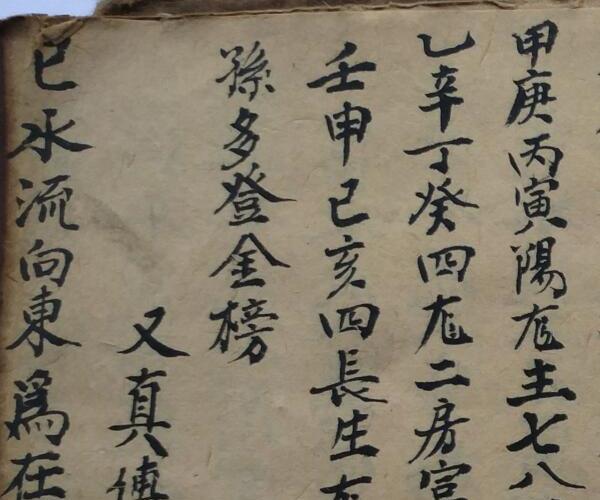 甲庚丙寅陽主七八
乙辛丁癸四二房
壬申己亥四長生
孫多登金榜
又真
巳水流向東爲在